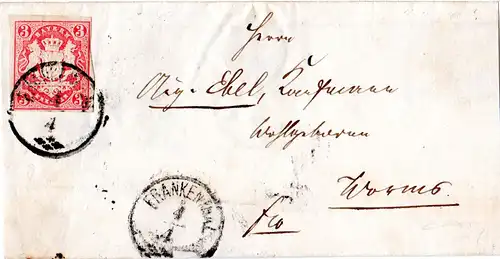 3 BAYERN 3
3 3
Herrn
Aug. Ebel, Kaufmann
Wohlgeboren
Worms.
fco
FRANKENTHAL
4